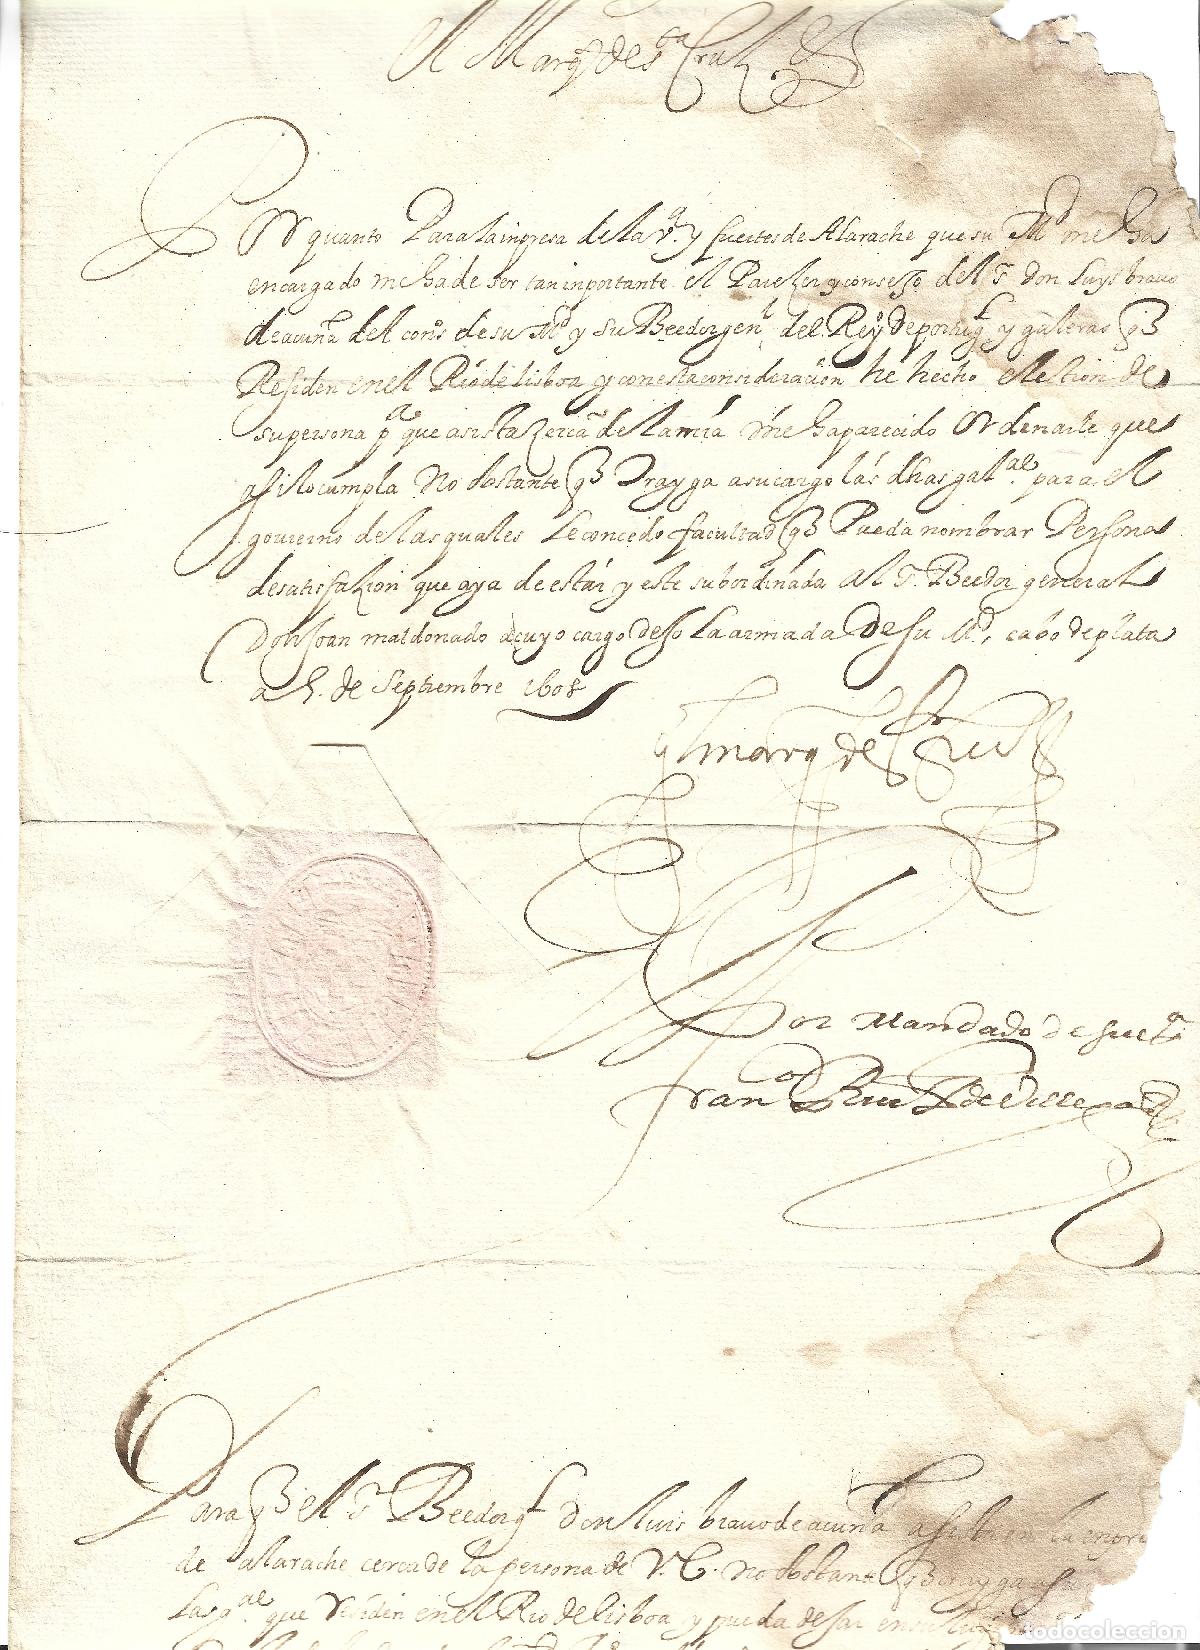 El Marqs de sta Cruz
Por quanto Para la inpresa de la va. y fuertes de Alarache que su Md me ha
encargado me ha de ser tan inportante el Parezer y consejo del Sr Don Luys bravo
de acuña del cons de su Md y su Beedor genl del Reyo de portugl y galeras qe
Residen en el Rio de lisboa y con esta consideracion he hecho election de
su persona pa que asista zerca de la mia Me ha parecido Ordenarle que
assi lo cumpla No obstante qe Trayga a su cargo las dhas galras para el
govierno de las quales le concedo facultad qe Pueda nombrar Persona
de satisfazion que aya de estar y este subordinada al Sr Beedor general
Don Joan maldonado a cuyo cargo dejo La armada de su Md, cabo de plata
a 5 de Septiembre 1608
El marq de sta Cruz
Por Mandado de su exa
Franco Ruiz de Villegas
Para qe el Sr Beedor gl don luis bravo de acuña
de alarache cerca de la persona de V. E. no obstante
Las gales que residen en el Rio de lisboa y pueda dexar en su lugar
todocoleccion